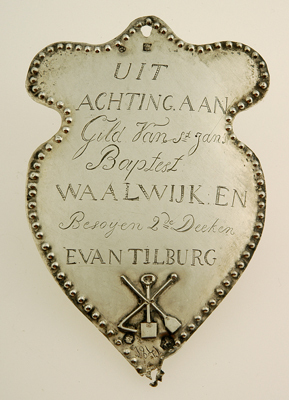 UIT
ACHTING. AAN
Gild Van St Jans
Baptest
WAALWIJK. EN
Besoyen 2de Deeken
E VAN TILBURG